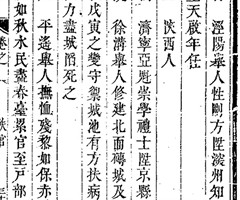 涇陽舉人性剛方陞濱州知
天啟年任
陜西人
濟寧亞魁崇學禮士陞京縣
徐溝舉人修建北面磚城及
戊寅之變守禦城池有方扶病
力盡城䧟死之
平遙舉人撫恤殘黎如保赤
如秋水民盡春臺累官至戸部
卷之